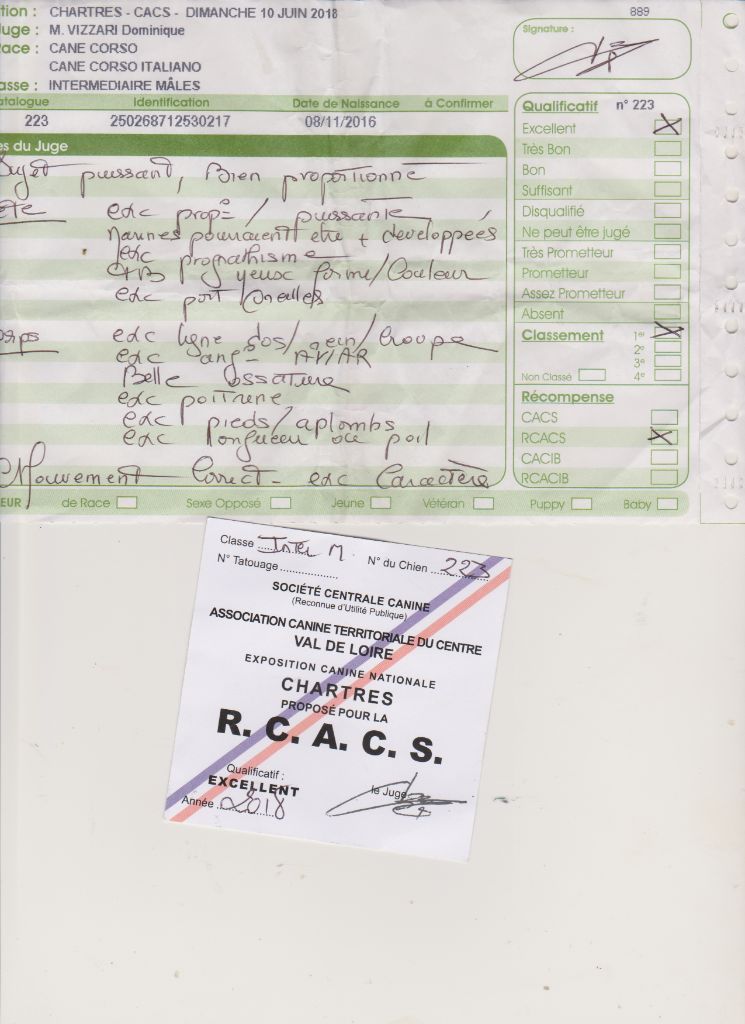 tion : CHARTRES - CACS - DIMANCHE 10 JUIN 2018
889
uge : M. VIZZARI Dominique
ace : CANE CORSO
CANE CORSO ITALIANO
asse : INTERMEDIAIRE MÂLES
Signature :
atalogue Identification Date de Naissance à Confirmer
223 250268712530217 08/11/2016
es du Juge
Sujet puissant, Bien proportionné
ête exc prop= / puissante
Narines pourraient être + développées
exc prognathisme
CTB pg yeux forme/Couleur
exc port Oreilles
orps exc ligne dos/rein/Croupe
exc ang= AV/AR
Belle ossature
exc poitrine
exc pieds/aplombs
exc longueur de poil
Mouvement Correct - exc Caractère
Qualificatif n° 223
Excellent X
Très Bon
Bon
Suffisant
Disqualifié
Ne peut être jugé
Très Prometteur
Prometteur
Assez Prometteur
Absent
Classement 1er X
2e
3e
Non Classé 4e
Récompense
CACS
RCACS X
CACIB
RCACIB
EUR de Race Sexe Opposé Jeune Vétéran Puppy Baby
Classe Inter M. N° du Chien 223
N° Tatouage
SOCIÉTÉ CENTRALE CANINE
(Reconnue d'Utilité Publique)
ASSOCIATION CANINE TERRITORIALE DU CENTRE
VAL DE LOIRE
EXPOSITION CANINE NATIONALE
CHARTRES
PROPOSÉ POUR LA
R. C. A. C. S.
Qualificatif :
EXCELLENT
le Juge
Année 2018